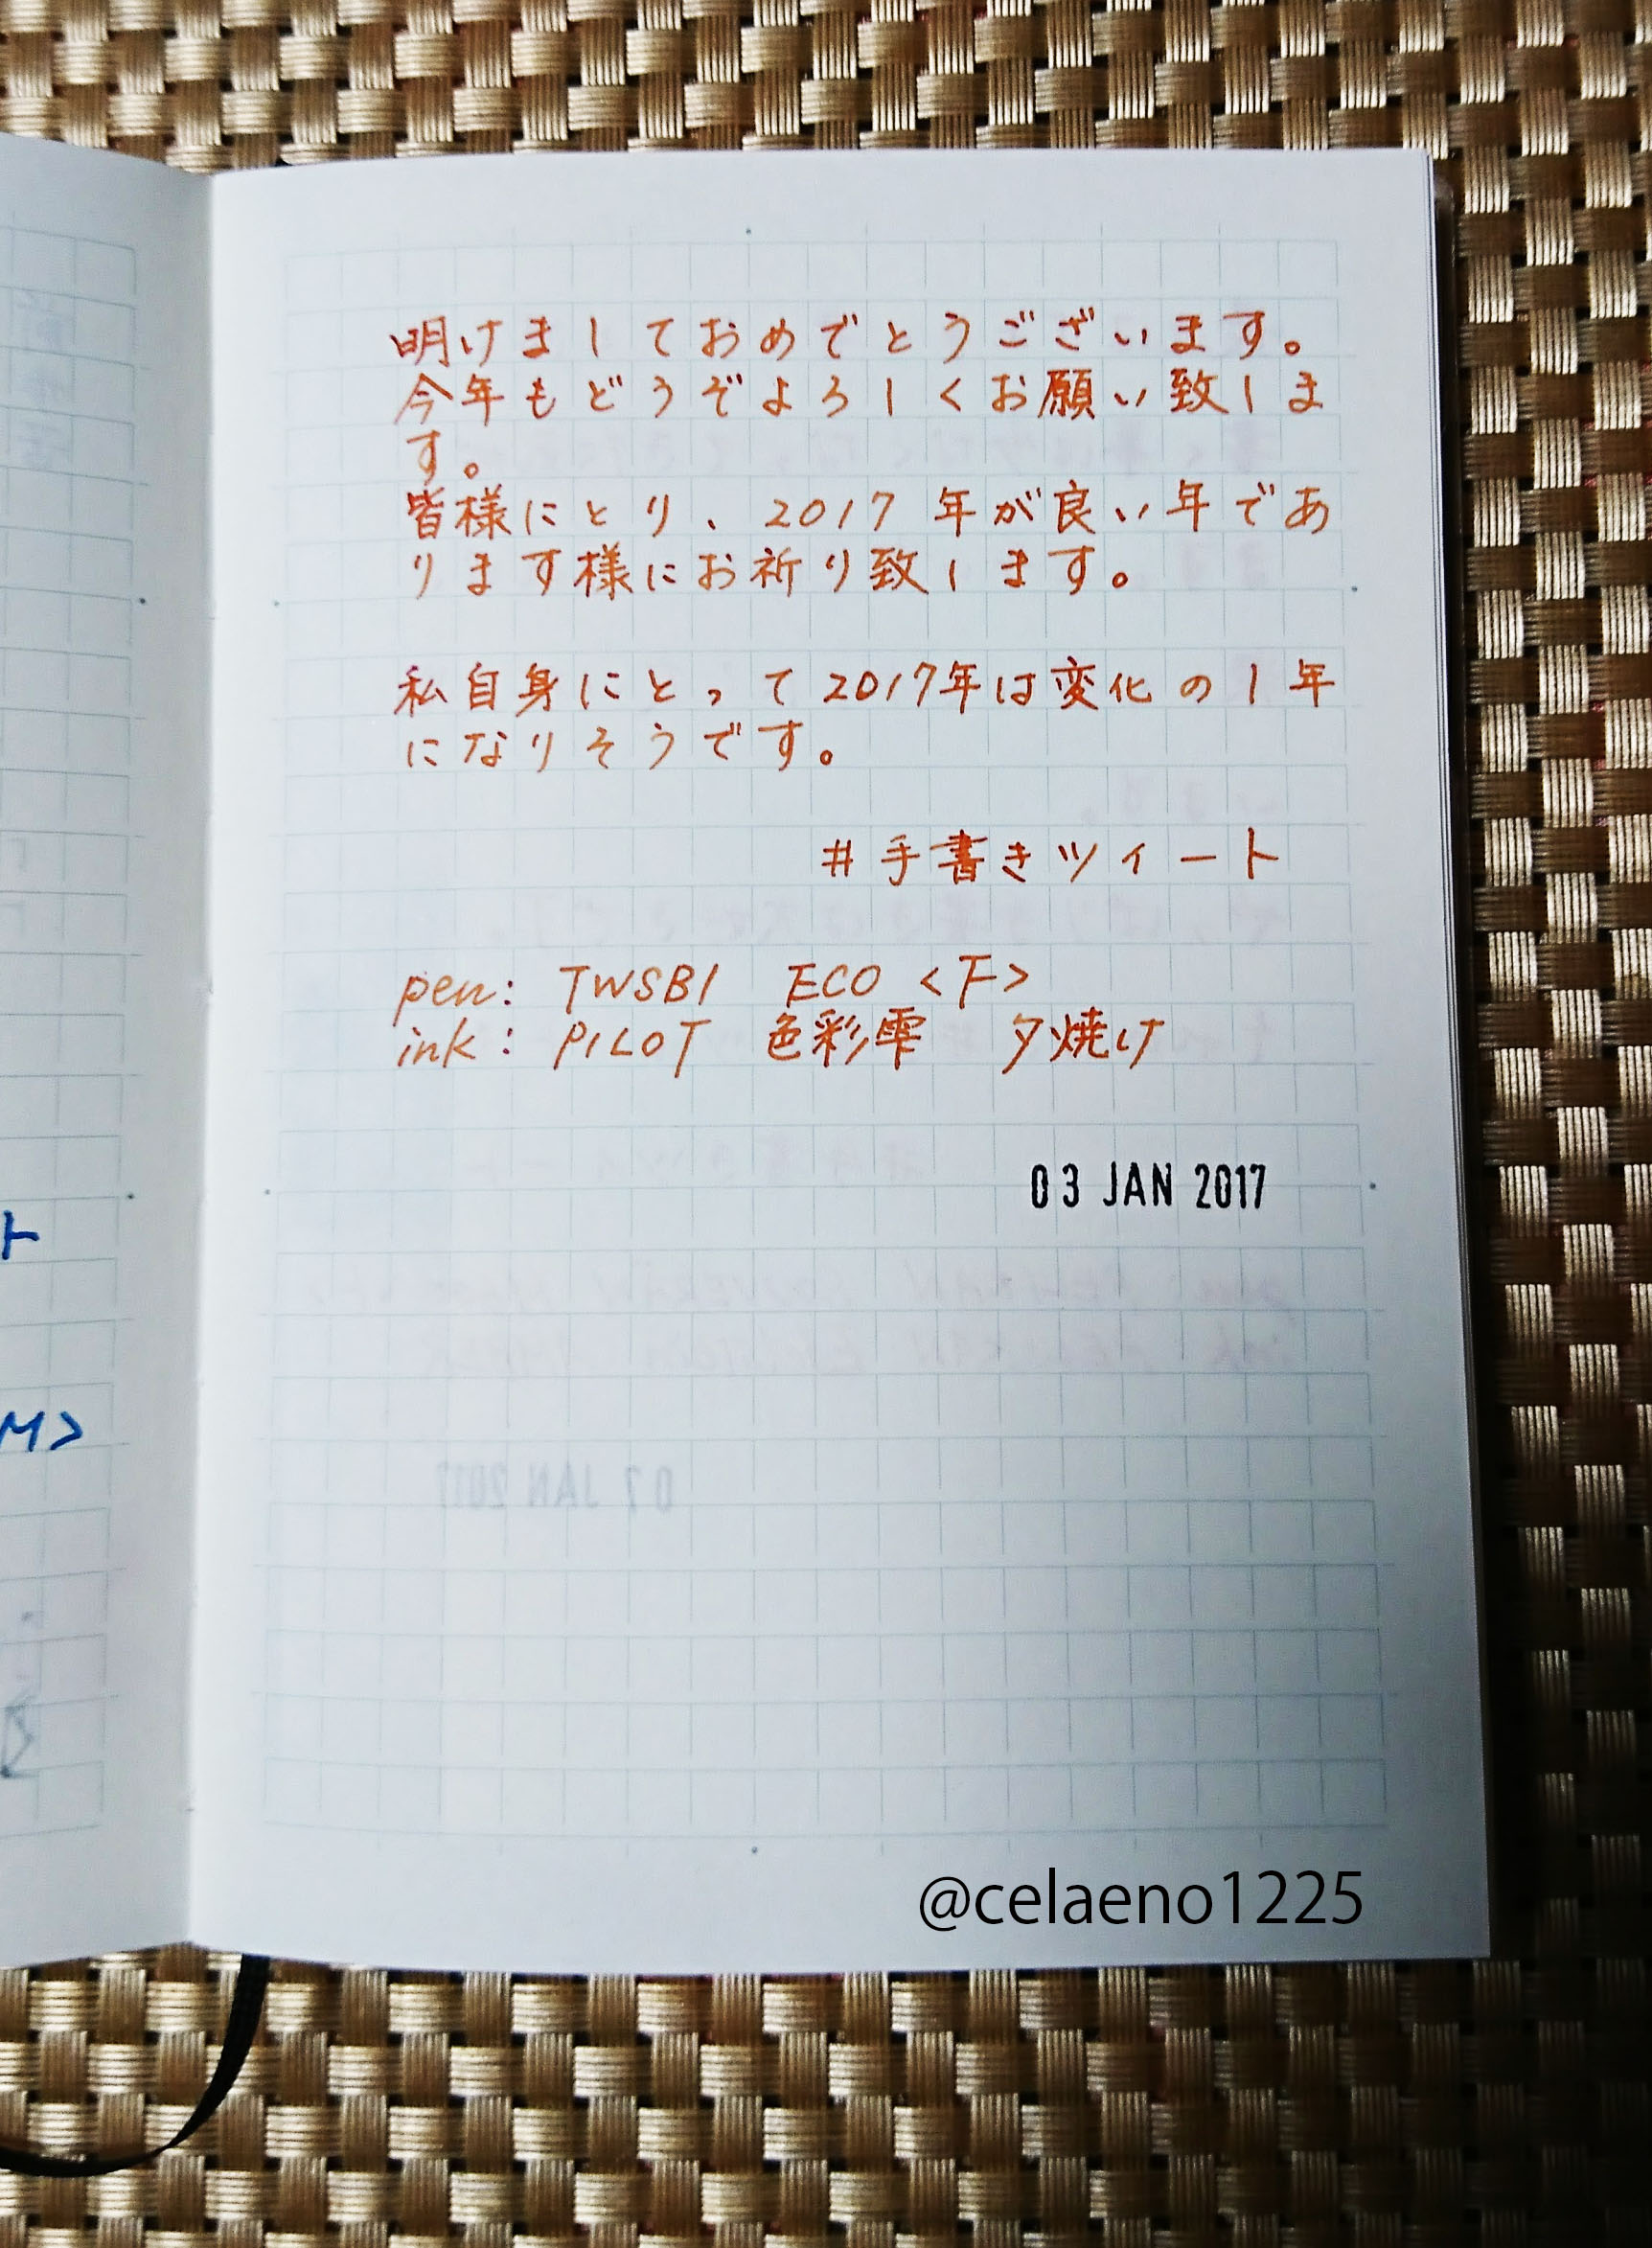 明けましておめでとうございます。
今年もどうぞよろしくお願い致しま
す。
皆様にとり、2017年が良い年であ
ります様にお祈り致します。
私自身にとって2017年は変化の1年
になりそうです。
#手書きツイート
pen: TWSBI ECO <F>
ink: PILOT 色彩雫 夕焼け
03 JAN 2017
07 JAN 2017
ト
M>
@celaeno1225